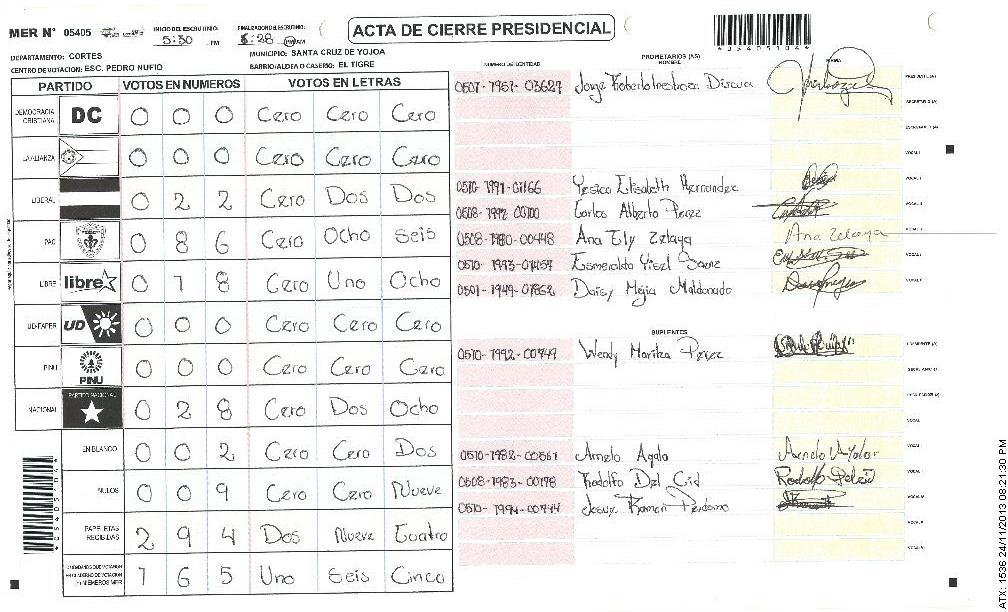 MER N° 05405 INICIO DEL ESCRUTINIO: 5:30 PM FINALIZACION DEL ESCRUTINIO: 8:28 PM AM ACTA DE CIERRE PRESIDENCIAL
DEPARTAMENTO: CORTES MUNICIPIO: SANTA CRUZ DE YOJOA
CENTRO DE VOTACION: ESC. PEDRO NUFIO BARRIO/ALDEA O CASERIO: EL TIGRE
NUMERO DE IDENTIDAD PROPIETARIOS (AS) NOMBRE FIRMA
PARTIDO VOTOS EN NUMEROS VOTOS EN LETRAS
DEMOCRACIA CRISTIANA DC 0 0 0 Cero Cero Cero
LA ALIANZA 0 0 0 Cero Cero Cero
LIBERAL 0 2 2 Cero Dos Dos
PAC 0 8 6 Cero Ocho Seis
LIBRE libre 0 1 8 Cero Uno Ocho
UD-FAPER UD 0 0 0 Cero Cero Cero
PINU PINU 0 0 0 Cero Cero Cero
NACIONAL PARTIDO NACIONAL 0 2 8 Cero Dos Ocho
EN BLANCO 0 0 2 Cero Cero Dos
NULOS 0 0 9 Cero Cero Nueve
PAPELETAS RECIBIDAS 2 9 4 Dos Nueve Cuatro
CIUDADANOS QUE VOTARON EN CUADERNO DE VOTACION Y MIEMBROS MER 1 6 5 Uno Seis Cinco
0507-1957-03627 Jorge Roberto Discua PRESIDENTE (A)
SECRETARIO (A)
ESCRUTADOR (A)
VOCAL I
Yesica Elisabeth Hernandez
Carlos Alberto Perez
0508-1980-00448 Ana Ely Zelaya Ana Zelaya
Esmeralda
Daisy Mejia Maldonado
SUPLENTES
0510-1992-00449 Wendy Maritza Perez
0510-1982-00561
0508-1983-00178 Rodolfo Del Cid Rodolfo
Ramon Perdomo
ATX: 1536 24/11/2013 08:21:30 PM